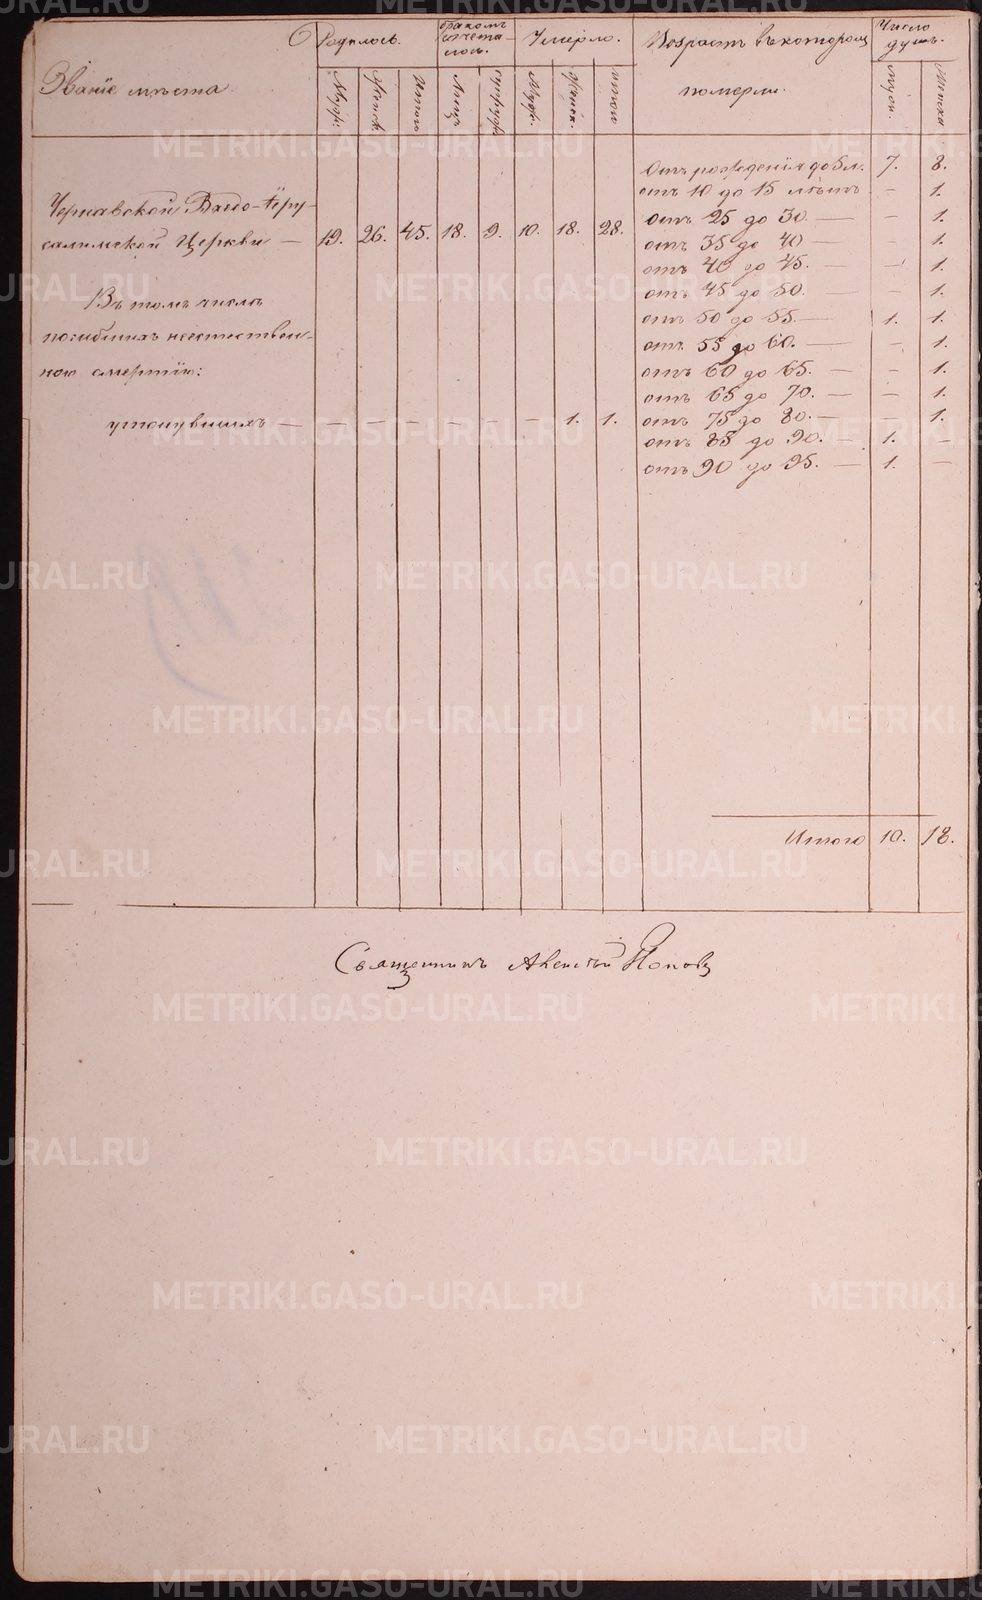 Званіе мѣста.
Родилось.
бракомъ сочета-
лось.
Умерло.
Возрастъ въ которомъ
померли.
Число
душъ.
Муж. Женск. Итого Лицъ супруж. Муж. Женск. итого муж.
Чернавской Входо-Іеру-
салимской Церкви — 19. 26. 45. 18. 9. 10. 18. 28.
Въ томъ числѣ
погибшихъ неестествен-
ною смертію:
утонувшихъ — — — — — — — 1. 1.
Отъ рожденія до 5 л. 7. 8.
отъ 10 до 15 лѣтъ — 1.
отъ 25 до 30. — — 1.
отъ 35 до 40 — — 1.
отъ 40 до 45. — — 1.
отъ 45 до 50. — — 1.
отъ 50 до 55. — 1. 1.
отъ 55 до 60. — — 1.
отъ 60 до 65. — — 1.
отъ 65 до 70. — — 1.
отъ 75 до 80. — — 1.
отъ 85 до 90. — 1. —
отъ 90 до 95. — 1. —
Итого 10. 18.
Священникъ Поповъ
METRIKI.GASO-URAL.RU